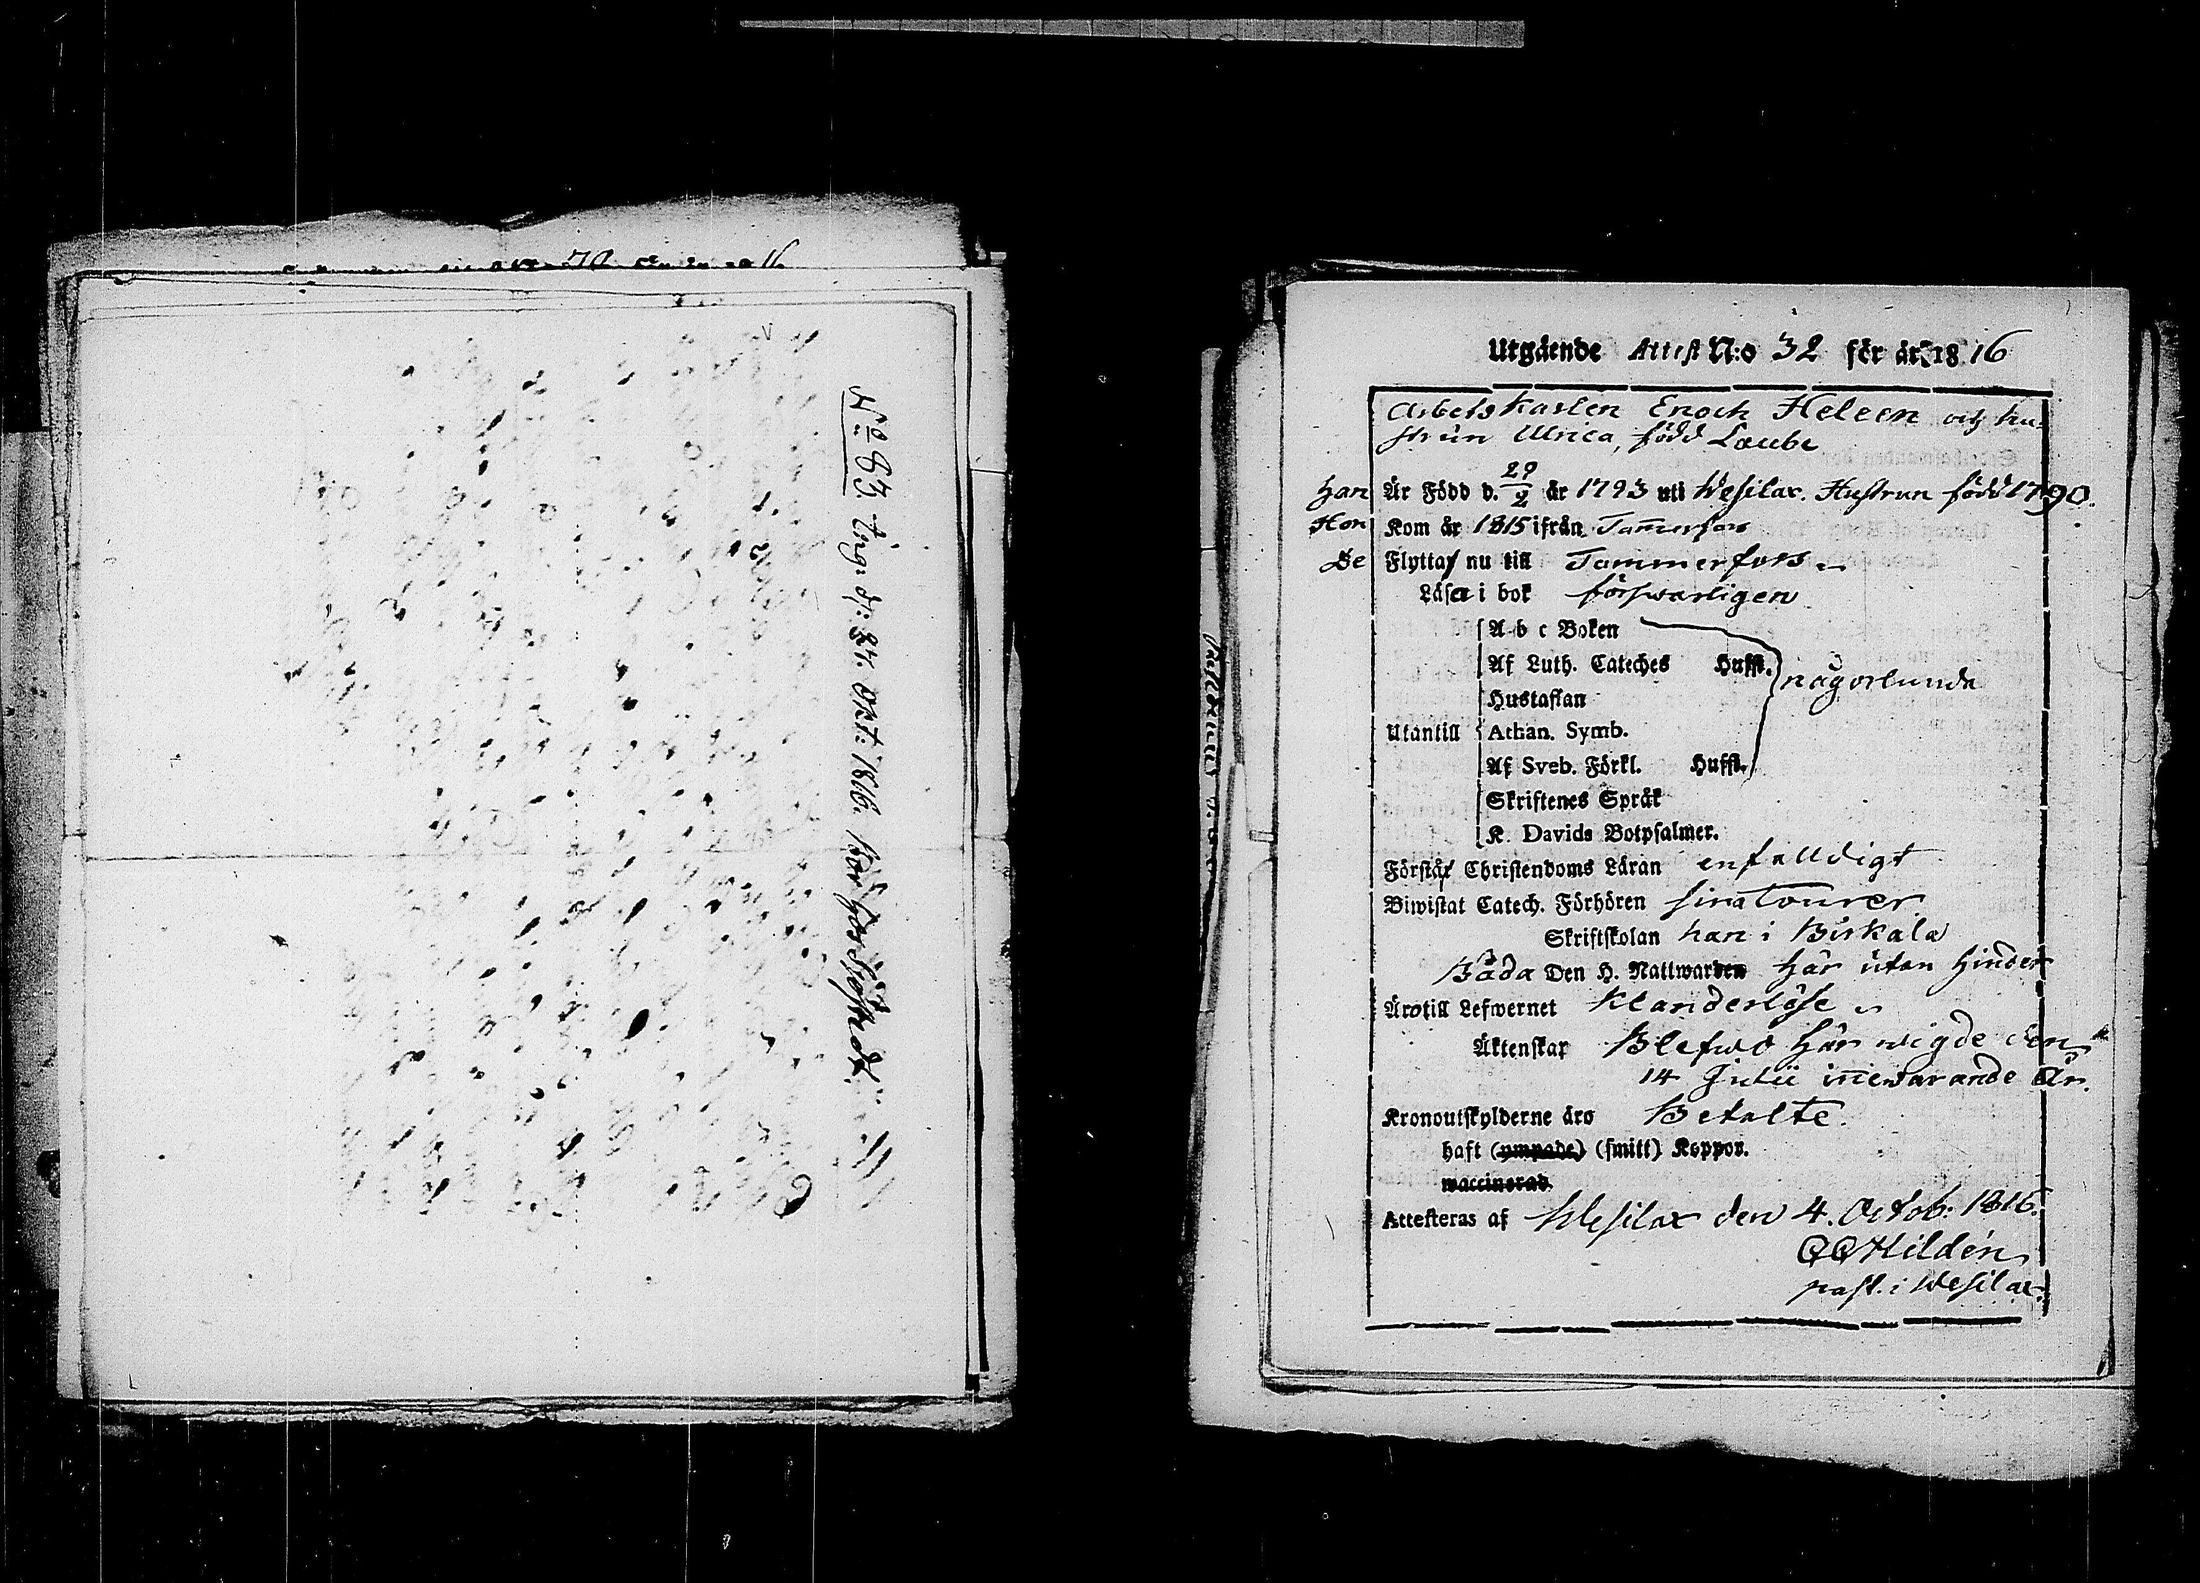 N:o 83 ing. d: 27. Oct: 1816.
Utgående Attest N:o 32 för år 1816
Arbetskarlen Enoch Heleen och hu-
strun Ulrica, född Laube
Han Är Född d. 29/2 år 1793 uti Wesilax. Hustrun född 1790.
Hon Kom år 1815 ifrån Tam̅erfors
De Flytta nu till Tammerfors
Läsa i bok försvarligen
A b c Boken
Af Luth. Cateches Huffst. någorlunda
Hustaflan
Utantill Athan. Symb.
Af Sveb. Förkl. Huffst.
Skriftenes Språk
K. Davids Botpsalmer.
Förstå Christendoms Läran enfalldigt
Biwistat Catech. Förhören sina Tourer
Skriftskolan han i Birkala
Båda Den H. Nattwarden här utan hinder
Äro till Lefwernet Klanderlöse
Äktenskap Blefwo här wigde den
14 Julii in̅ewarande år.
Kronoutskylderne äro Betalte.
haft (ympade) (smitt) Koppor.
waccinerad
Attesteras af Wesilax den 4. Octob: 1816.
CC Hildén
past. i Wesilax.